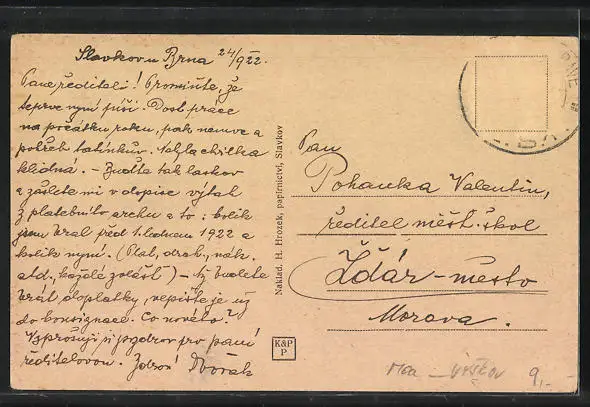 Slavkov u Brna 24/9 22.
Pane řediteli! Promiňte, že
teprve nyní píši. Dost práce
na počátku roku, pak nemoc a
pohřeb tatínkův. Nebyla chvilka
klidná. – Buďte tak laskav
a zašlete mi v dopise výtah
z platebního archu a to: kolik
jsem bral před 1. lednem 1922 a
kolik nyní. (Plat, drah., nák.
atd. každé zvlášť) – Ať budete
brát doplatky, nepište je už
do konsignace. Co nového?
Vyprošuji si pozdrav pro paní
ředitelovou. Dvořák
Naklad. H. Hrozek, papírnictví, Slavkov
K&P
P
Pan
Pohanka Valentin,
ředitel měšť. škol
Žďár–město
Morava.
Moa – VYŠKOV 9,-